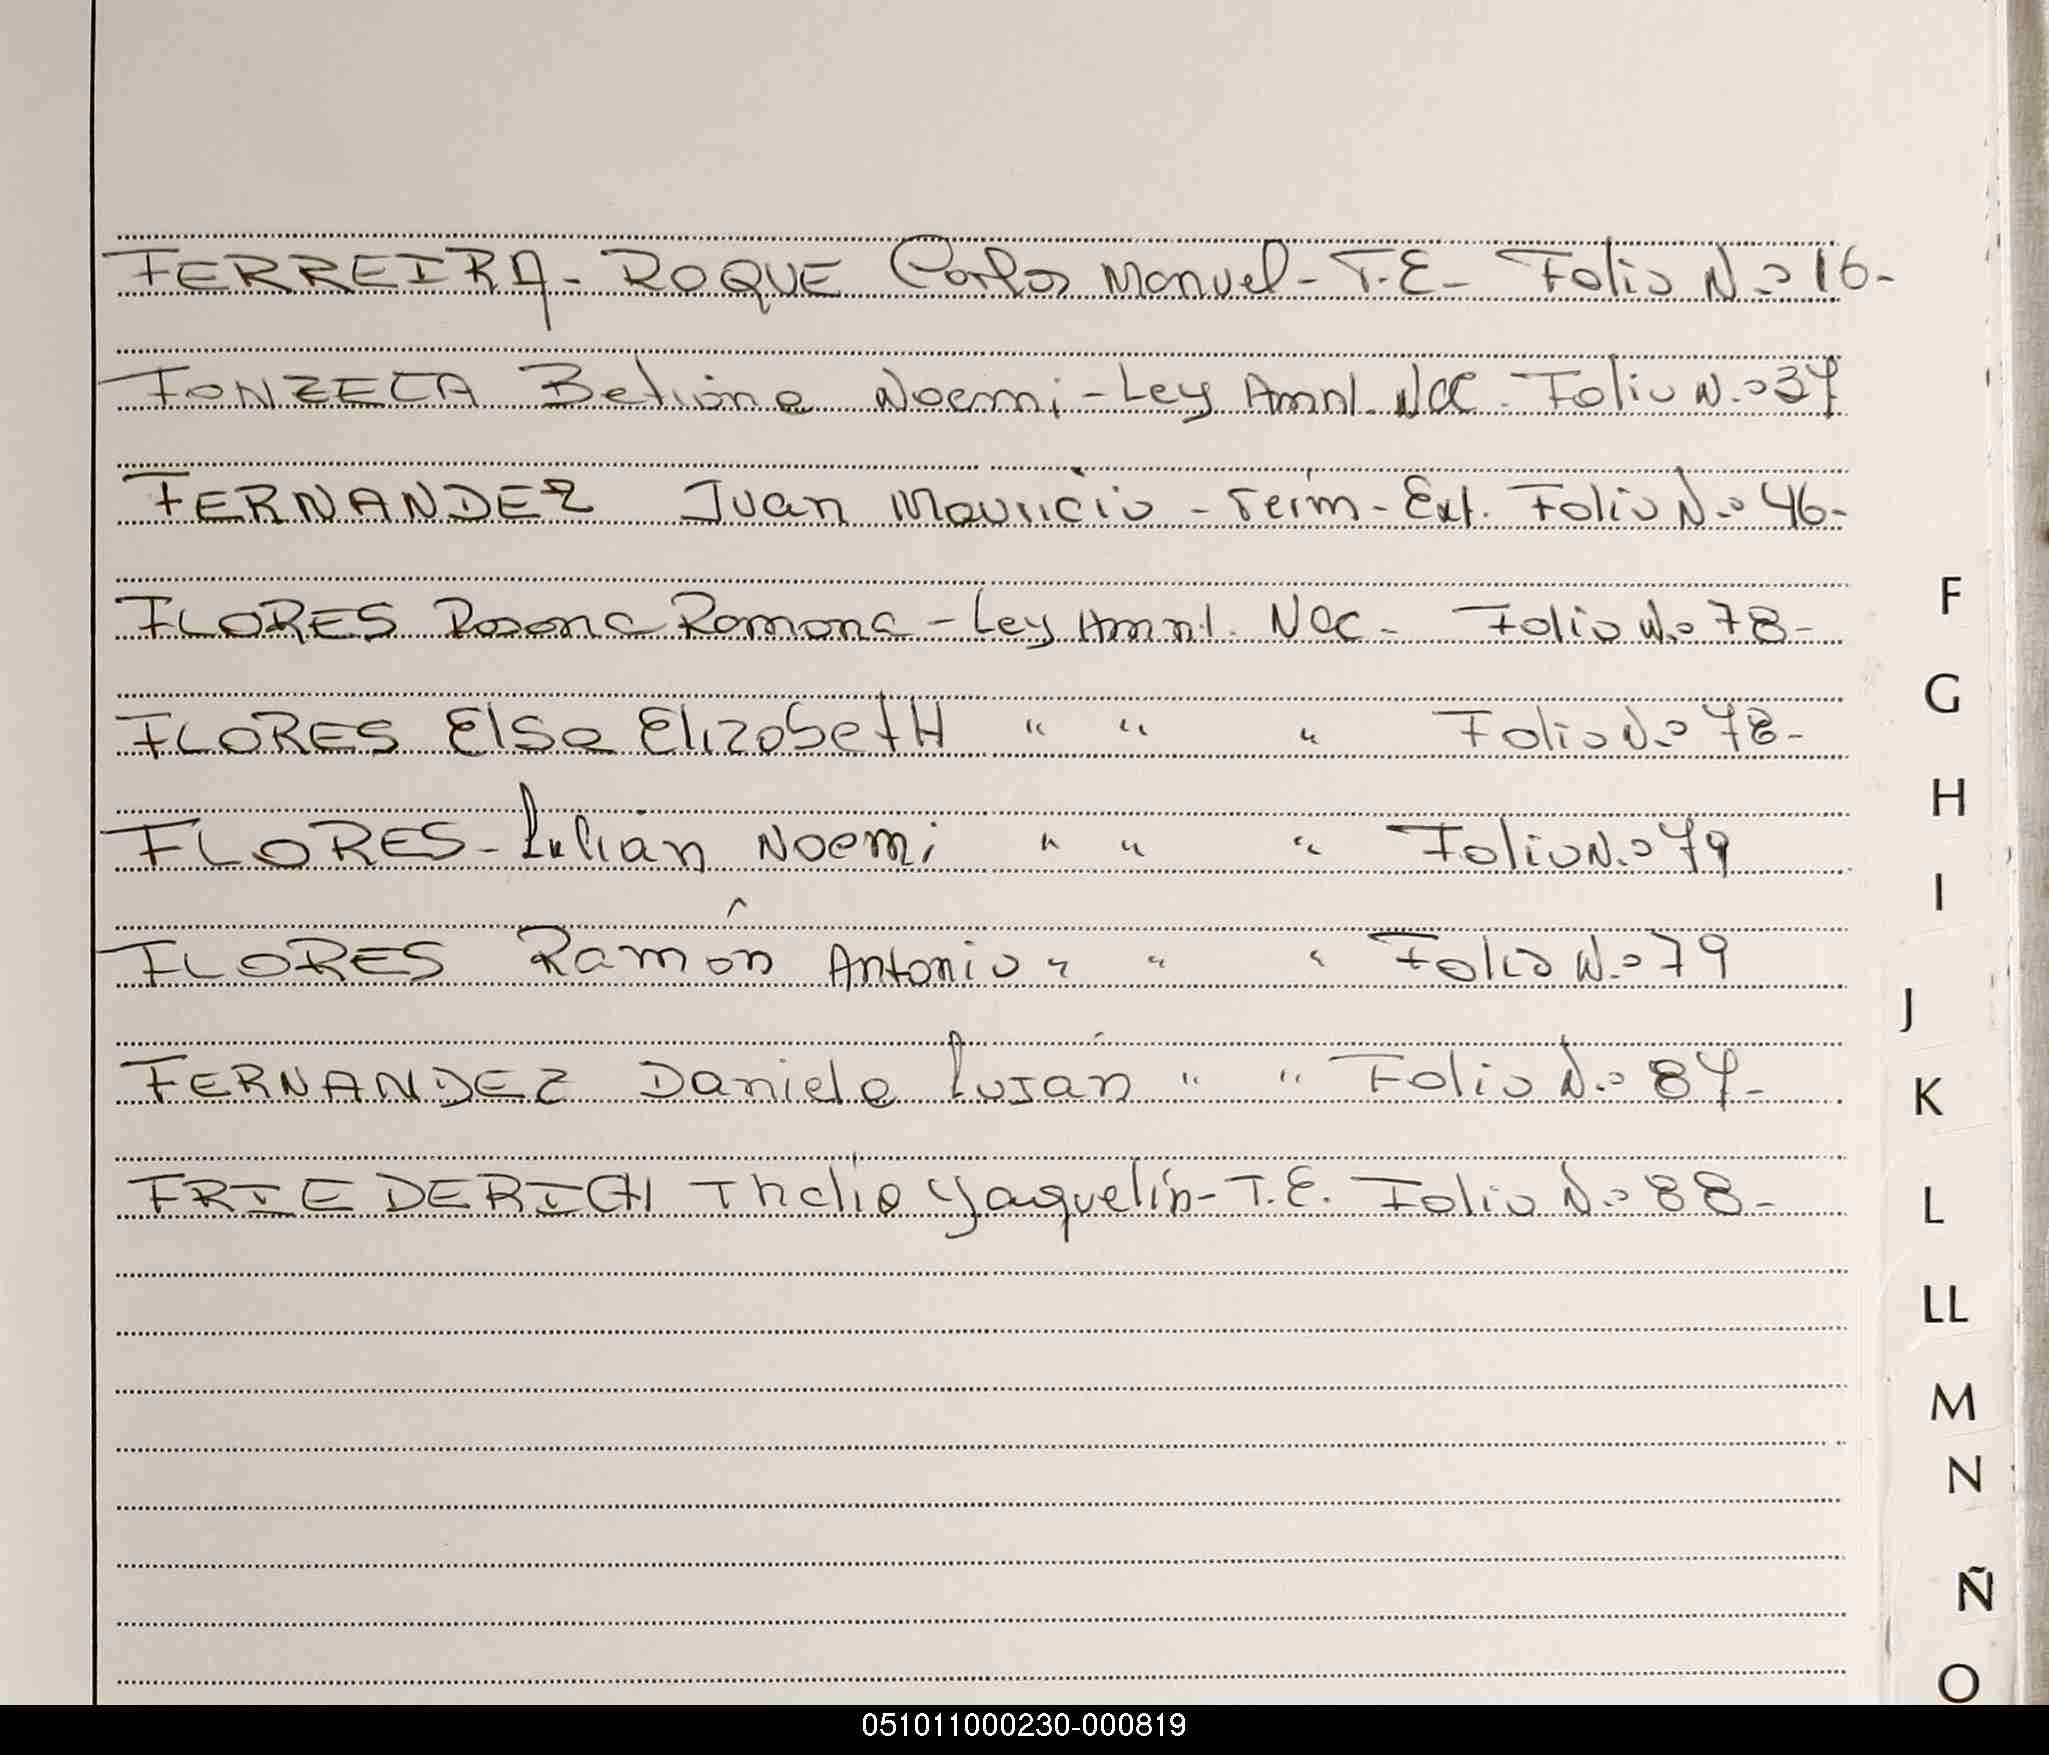 FERREIRA- ROQUE Carlos Manuel- T.E- Folio N.º 16-
FONZECA Betiana Noemi - Ley Amnl. Nac. Folio N.º 37
FERNANDEZ Juan Mauricio - Term- Ext. Folio N.º 46-
FLORES Rosana Ramona - Ley Amnl. Nac- Folio N.º 78-
FLORES Elsa ElizabetH " " " Folio N.º 78-
FLORES- Lulian Noemi " " " Folio N.º 79
FLORES Ramón Antonio " " " Folio N.º 79
FERNANDEZ Daniela Luján " " Folio N.º 87-
FRIEDERICH Thalia Yaquelin- T.E. Folio N.º 88-
F
G
H
I
J
K
L
LL
M
N
Ñ
O
051011000230-000819